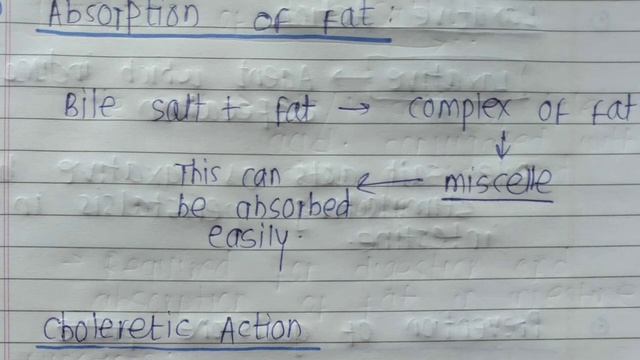 Absorption of fat:
Bile salt + fat → complex of fat
↓
This can ← miscelle
be absorbed
easily.
Choleretic Action